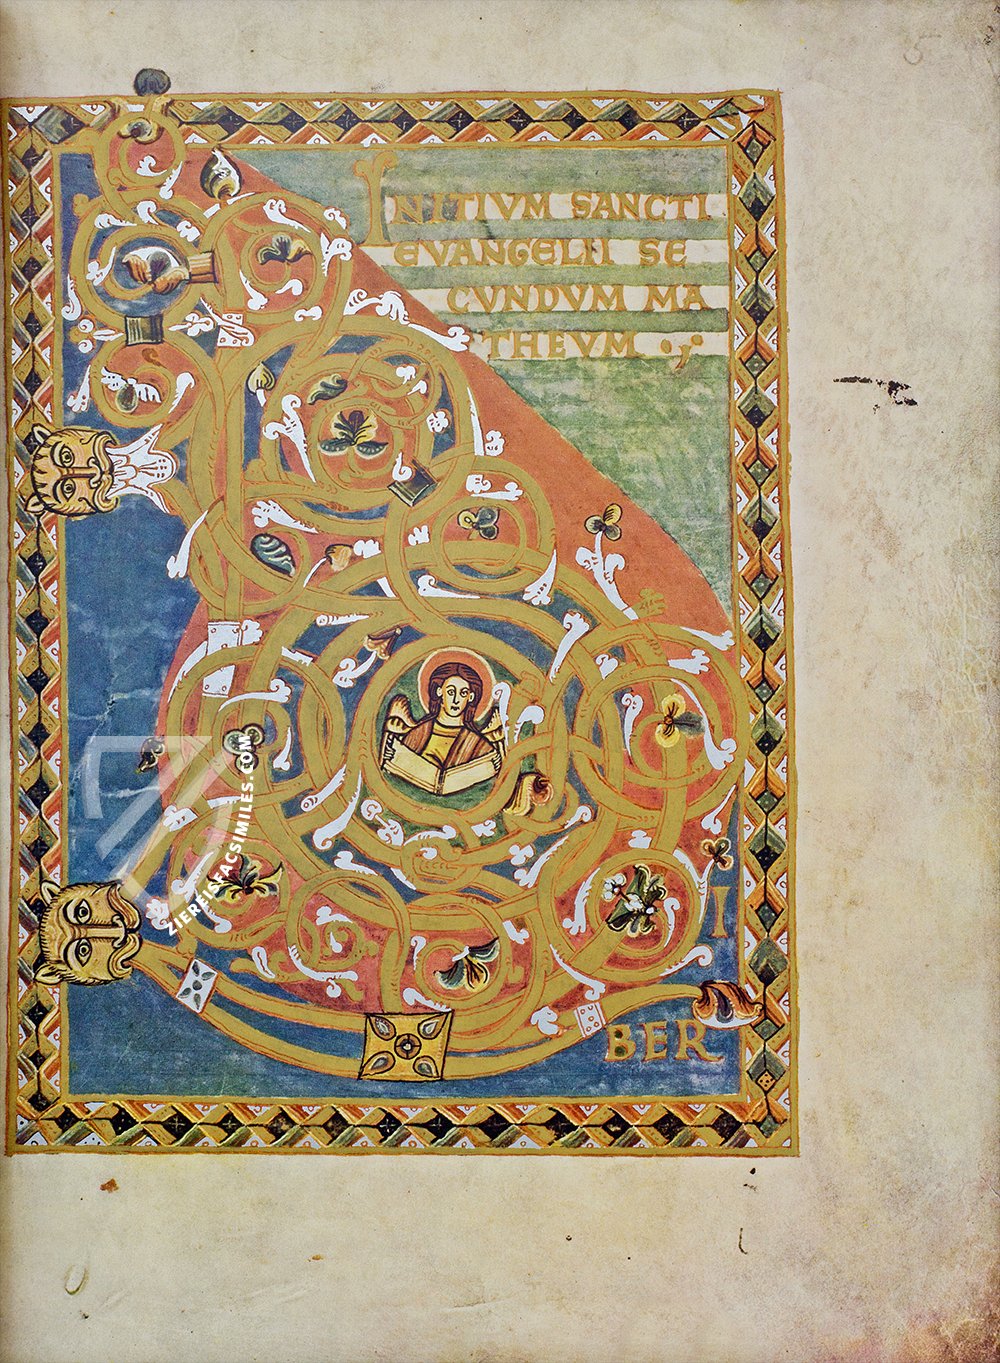 INITIVM SANCTI
EVANGELII SE
CVNDVM MA
THEVM
L
I
BER
ZIEREISFACSIMILES.COM